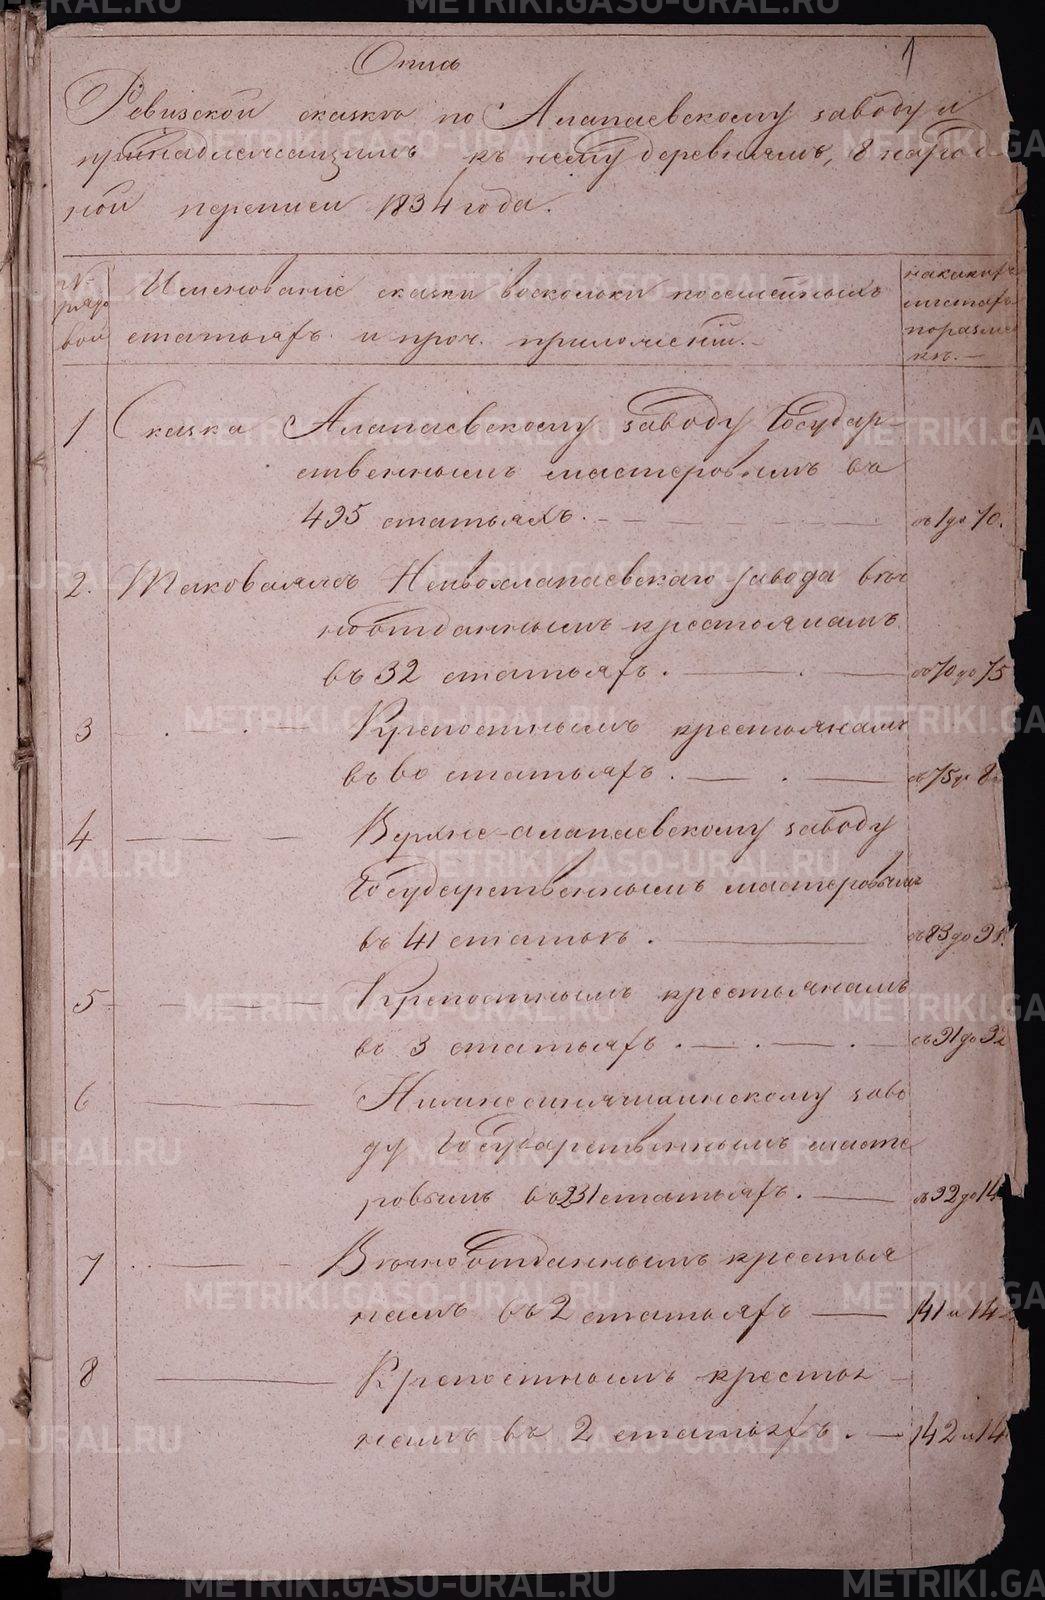 1
Опись
Ревизской сказки по Алапаевскому заводу и
принадлежащимъ къ нему деревнямъ, 8 народ-
ной переписи 1834 года.
№
рядо
вой
Именованіе сказки восколки посемейныхъ
статьяхъ и проч. приложеній.
на какихъ
листахъ
по размѣт
кѣ.
1 Сказка Алапаевскому заводу Государ-
ственнымъ мастеровымъ въ
495 статьяхъ. съ 1 до 70.
2. Таковаяжъ Нейвоалапаевскаго завода вѣч
ноотданнымъ крестьянамъ
въ 32 статьяхъ. съ 70 до 75
3 Крепостнымъ крестьянамъ
въ 60 статьяхъ. съ 75 до
4 Верхне-алапаевскому заводу
Государственнымъ мастеровымъ
въ 41 статьѣ. съ 83 до 91.
5 Крепостнымъ крестьянамъ
въ 3 статьяхъ. съ 91 до 92
6 Нижнесинячихинскому заво
ду Государственнымъ масте
ровымъ въ 231 статьяхъ. съ 92 до 14
7 Вѣчноотданнымъ крестья
намъ въ 2 статьяхъ 141 и 14
8 Крепостнымъ крестья
намъ въ 2 статьяхъ. 142 и 14
METRIKI.GASO-URAL.RU